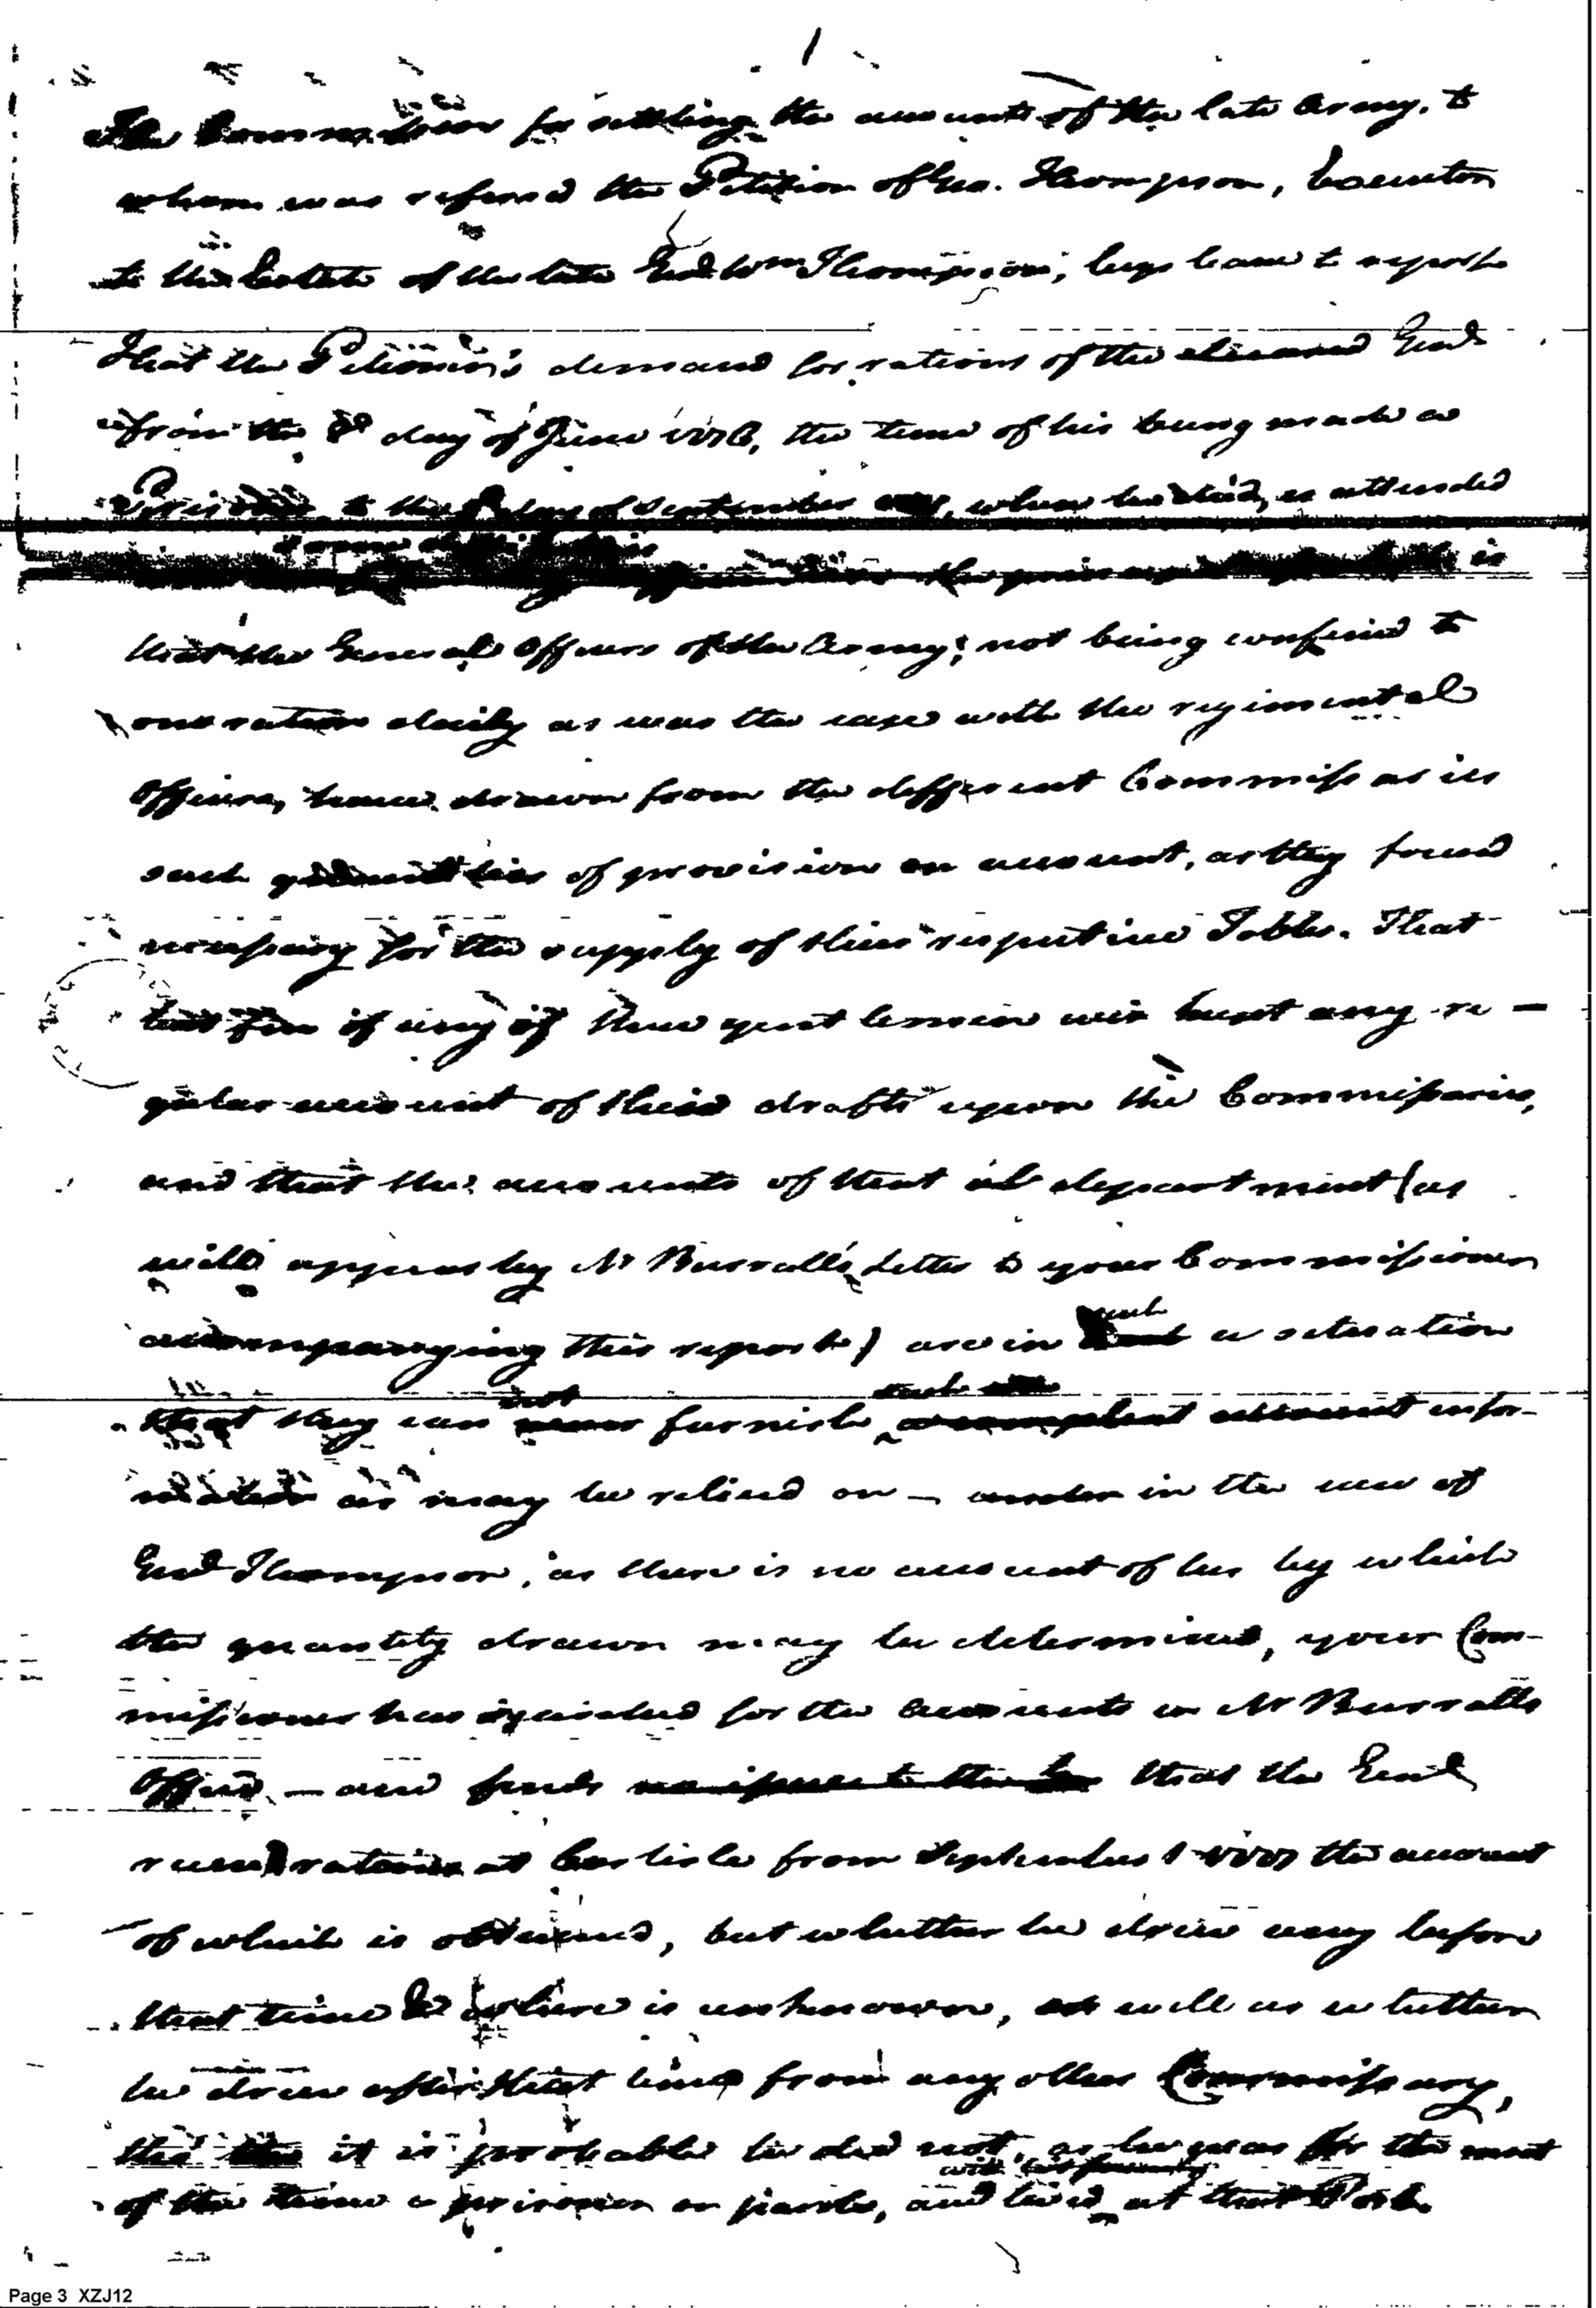 1
The Commissioner for settling the accounts of the late Army, to
whom was referred the Petition of Geo. Thompson, Executor
to the Estate of the late Genl Wm Thompson, begs leave to report
That the Petitioner's demand for rations of the deceased Genl
from the 8 day of June 1776, the time of his being made a
Prisoner, to the day of September when he died, is attended
is
that the General Officers of the Army; not being confined to
one ration daily as was the case with the regimental
Officers, have drawn from the different Commissaries
such quantities of provision on account, as they found
necessary for the supply of their respective Tables. That
but few if any of these gentlemen have kept any re-
gular account of their drafts upon the Commissaries,
and that the accounts of that department (as
will appear by Mr Burralls Letter to your Commissioner
accompanying this report) are in such a situation
that they can not furnish such infor-
mation as may be relied on — in the case of
Genl Thompson, as there is no account of his by which
the quantity drawn may be determined, your Com-
missioner has inquired for the accounts in Mr Burralls
Office — and finds that the Genl
received rations at Carlisle from September 1 1777 the account
of which is obtained, but whether he drew any before
that time & where is unknown, as well as whether
he drew after that time from any other Commissary,
tho' it is probable he did not, as he was for the most
with his family
of the time a prisoner on parole, and lived at that Post
Page 3 XZJ12